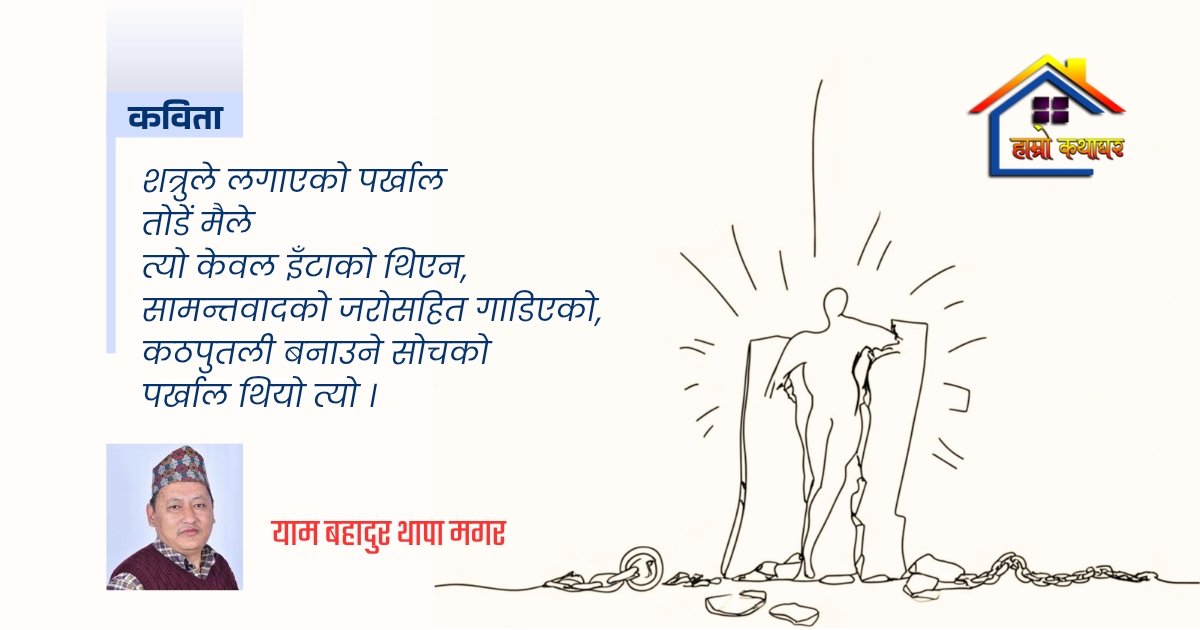 कविता
शत्रुले लगाएको पर्खाल
तोडें मैले
त्यो केवल इँटाको थिएन,
सामन्तवादको जरोसहित गाडिएको,
कठपुतली बनाउने सोचको
पर्खाल थियो त्यो ।
याम बहादुर थापा मगर
हाम्रो कथाघर